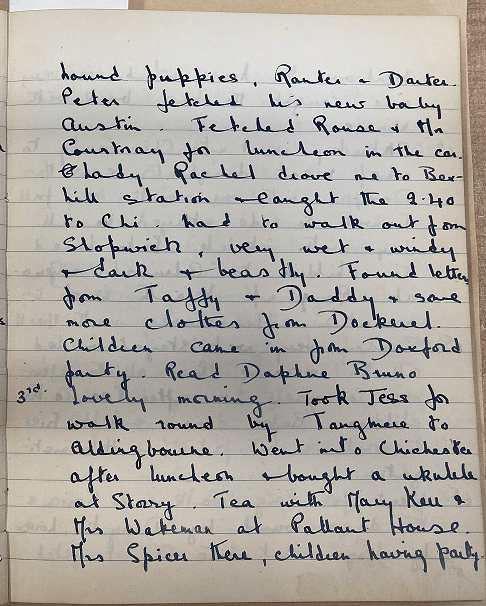 hound puppies, Ranter & Darter.
Peter fetched his new baby
Austin. Fetched Rouse & Mr
Courtnay for luncheon in the car.
& Lady Rachel drove me to Bex-
hill station & caught the 2.40
to Chi. had to walk out from
Shopwich, very wet & windy
& dark & beastly. Found letters
from Taffy & Daddy & some
more clothes from Dockerel.
Children came in from Doxford
party. Read Daphne Bruno
3rd. Lovely morning. Took Jess for
walk round by Tangmere to
Aldingbourne. Went into Chichester
after luncheon & bought a ukulele
at Storry. Tea with Mary Kell &
Mrs Wakeman at Pallant House.
Mrs Spicer there, children having party.